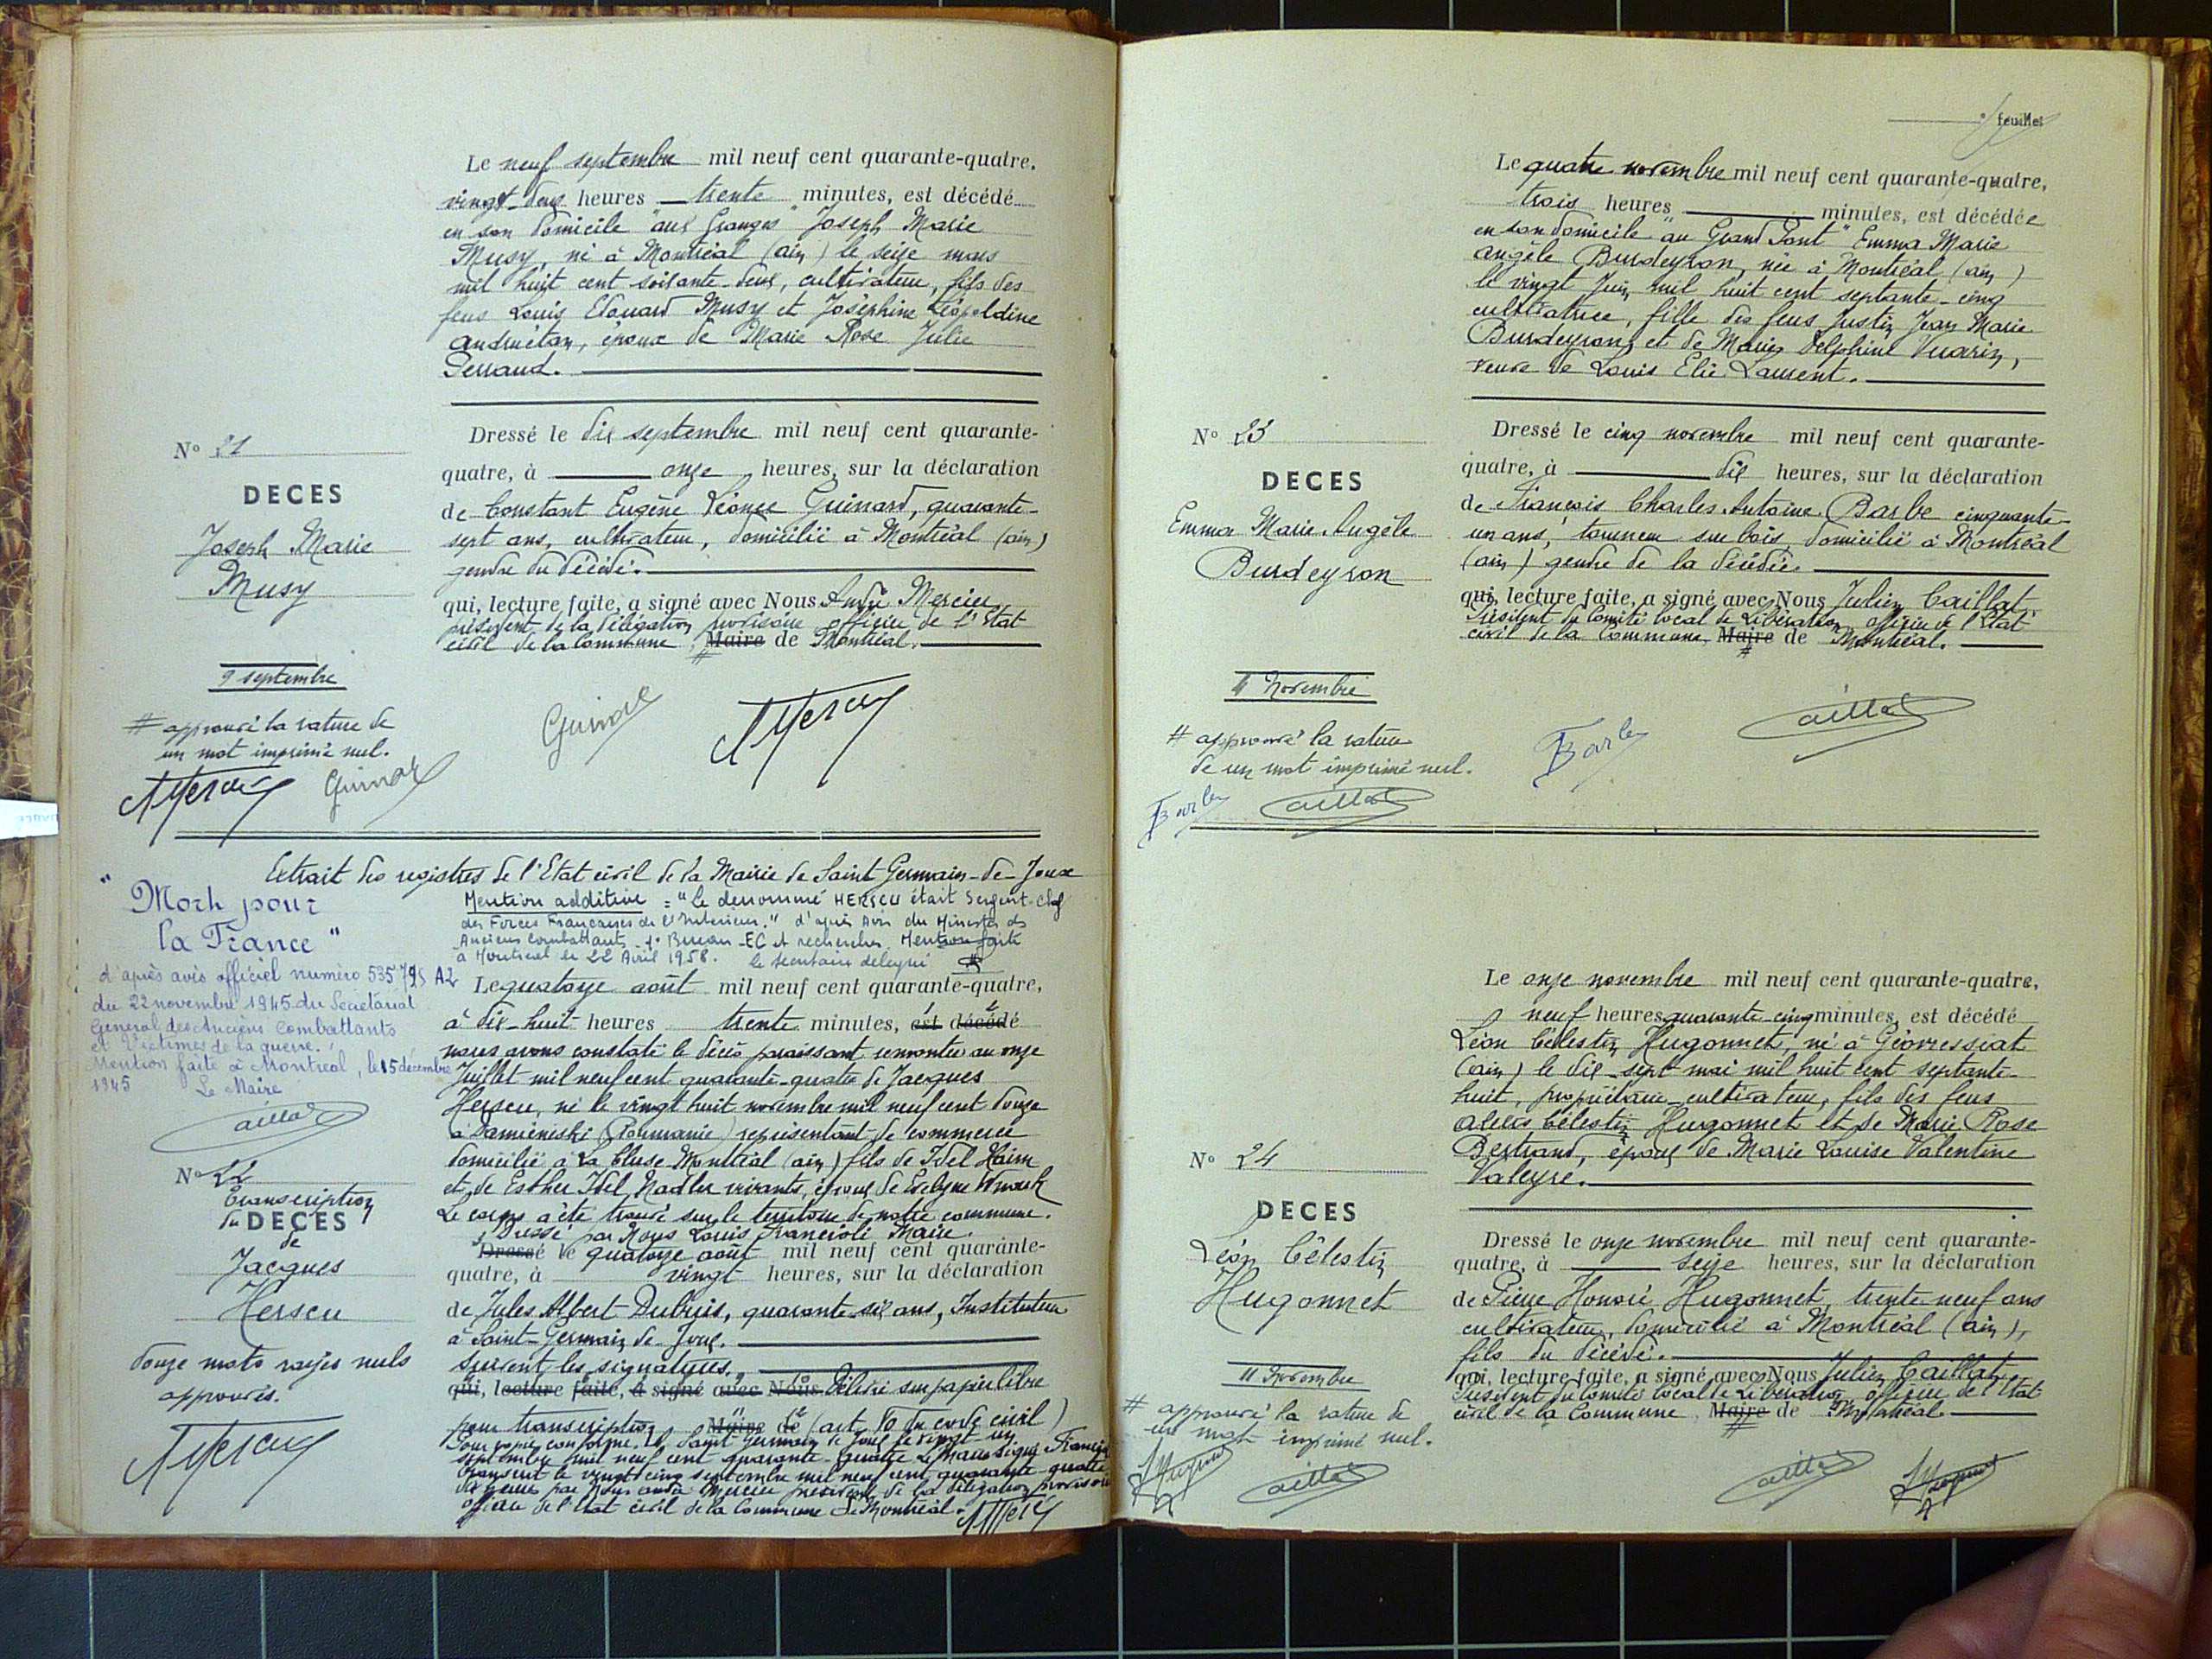 Le neuf septembre mil neuf cent quarante-quatre,
vingt-deux heures trente minutes, est décédé
en son domicile "aux Granges" Joseph Marie
Musy, né à Montréal (ain) le seize mars
mil huit cent soixante-deux, cultivateur, fils des
feus Louis Edouard Musy et Joséphine Léopoldine
Andruétan, époux de Marie Rose Julie
Perraud.
N° 21
DECES
Joseph Marie
Musy
Dressé le dix septembre mil neuf cent quarante-
quatre, à onze heures, sur la déclaration
de Constant Eugène Léonce Guinard, quarante-
sept ans, cultivateur, domicilié à Montréal (ain)
gendre du décédé.
qui, lecture faite, a signé avec Nous André Mercier,
président de la délégation provisoire officier de l'Etat
civil de la Commune, Maire de Montréal.
9 septembre
# approuvé la rature de
un mot imprimé nul.
Extrait des registres de l'Etat civil de la Mairie de Saint-Germain-de-Joux
"Mort pour
la France"
d'après avis officiel numéro 535.795 A2
du 22 novembre 1945 du Secrétariat
Général des Anciens Combattants
et Victimes de la guerre.
Mention faite à Montréal, le 15 décembre
1945
Le Maire
Mention additive = "Le dénommé HERSCU était Sergent-Chef
des Forces Françaises de l'Intérieur." d'après Avis du Ministre des
Anciens Combattants - 1° Bureau - EC et recherches. Mention faite
à Montréal le 22 Avril 1958. le secrétaire délégué
Le quatorze août mil neuf cent quarante-quatre,
à dix-huit heures trente minutes, est décédé
nous avons constaté le décès paraissant remonter au onze
Juillet mil neuf cent quarante-quatre de Jacques
Herscu, né le vingt huit novembre mil neuf cent douze
à Damieniski (Roumanie) représentant de commerce
domicilié à La Cluse-Montréal (ain) fils de Idel Haim
et de Esther Idil Nadler vivants, époux de Evelyne
Le corps a été trouvé sur le territoire de notre commune.
Dressé par Nous Louis Francioli Maire.
N° 22
Transcription
du DECES
de
Jacques
Herscu
Dressé le quatorze août mil neuf cent quarante-
quatre, à vingt heures, sur la déclaration
de Jules Albert Dubuis, quarante-six ans, Instituteur
à Saint-Germain de Joux.
Suivent les signatures.
qui, lecture faite, a signé avec Nous Délivré sur papier libre
pour transcription Maire de (art. 80 du code civil)
Pour copie conforme. A Saint Germain de Joux le vingt un
septembre mil neuf cent quarante-quatre Le Maire signé Francioli
Transcrit le vingt cinq septembre mil neuf cent quarante-quatre
par Nous André Mercier président de la délégation provisoire
officier de l'Etat civil de la Commune de Montréal.
douze mots rayés nuls
approuvés.
feuillet
Le quatre novembre mil neuf cent quarante-quatre,
trois heures minutes, est décédée
en son domicile "au Grand Pont" Emma Marie
Angèle Burdeyron, née à Montréal (ain)
le vingt Juin mil huit cent septante-cinq
cultivatrice, fille des feus Justin Jean Marie
Burdeyron, et de Marie Delphine Vuarin,
veuve de Louis Elie Laurent.
N° 23
DECES
Emma Marie Angèle
Burdeyron
Dressé le cinq novembre mil neuf cent quarante-
quatre, à dix heures, sur la déclaration
de François Charles Antoine Barbe cinquante-
un ans, tourneur sur bois, domicilié à Montréal
(ain) gendre de la décédée
qui, lecture faite, a signé avec Nous Julien Caillat,
Président du Comité local de Libération officier de l'Etat
civil de la Commune, Maire de Montréal.
4 Novembre
# approuvé la rature
de un mot imprimé nul.
Le onze novembre mil neuf cent quarante-quatre,
neuf heures quarante cinq minutes, est décédé
Léon Célestin Hugonnet, né à Géovressiat
(ain) le dix-sept mai mil huit cent septante-
huit, propriétaire-cultivateur, fils des feus
Alexis Célestin Hugonnet et de Marie Rose
Bertrand, époux de Marie Louise Valentine
Valeyre.
N° 24
DECES
Léon Célestin
Hugonnet
Dressé le onze novembre mil neuf cent quarante-
quatre, à seize heures, sur la déclaration
de Pierre Honoré Hugonnet, trente neuf ans
cultivateur, domicilié à Montréal (ain),
fils du décédé.
qui, lecture faite, a signé avec Nous Julien Caillat,
Président du Comité local de Libération officier de l'Etat
civil de la Commune, Maire de Montréal.
11 Novembre
# approuvé la rature de
un mot imprimé nul.